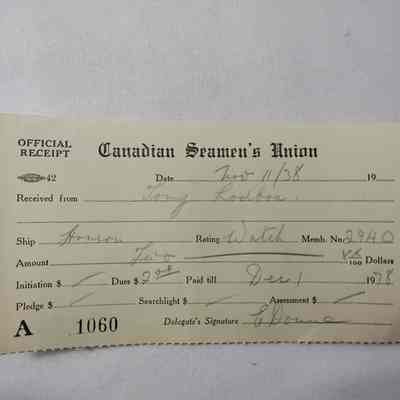 OFFICIAL RECEIPT Canadian Seamen's Union
42 Date Nov 11/38 19
Received from Tony
Ship Rating Watch Memb. No. 2940
Amount Two xx/100 Dollars
Initiation $ Dues $ 2.00 Paid till Dec 1 1938
Pledge $ Searchlight $ Assessment $
A 1060 Delegate's Signature